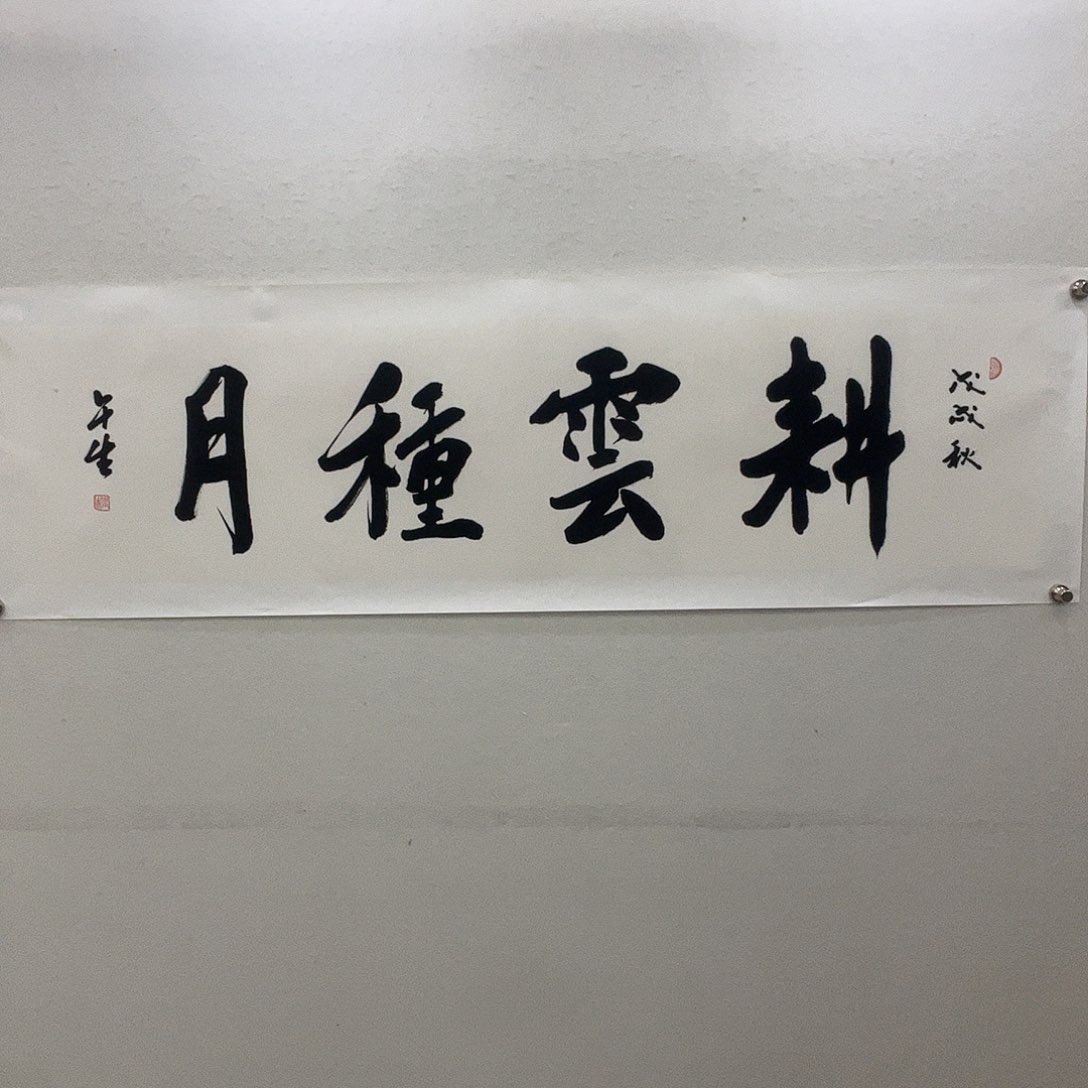 戊戌秋
耕雲種月
午生